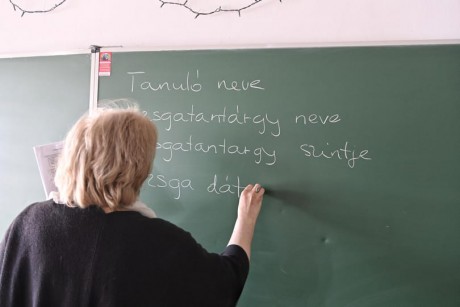 Tanuló neve
zsgatantárgy neve
zsgatantargy szintje
zsga dát